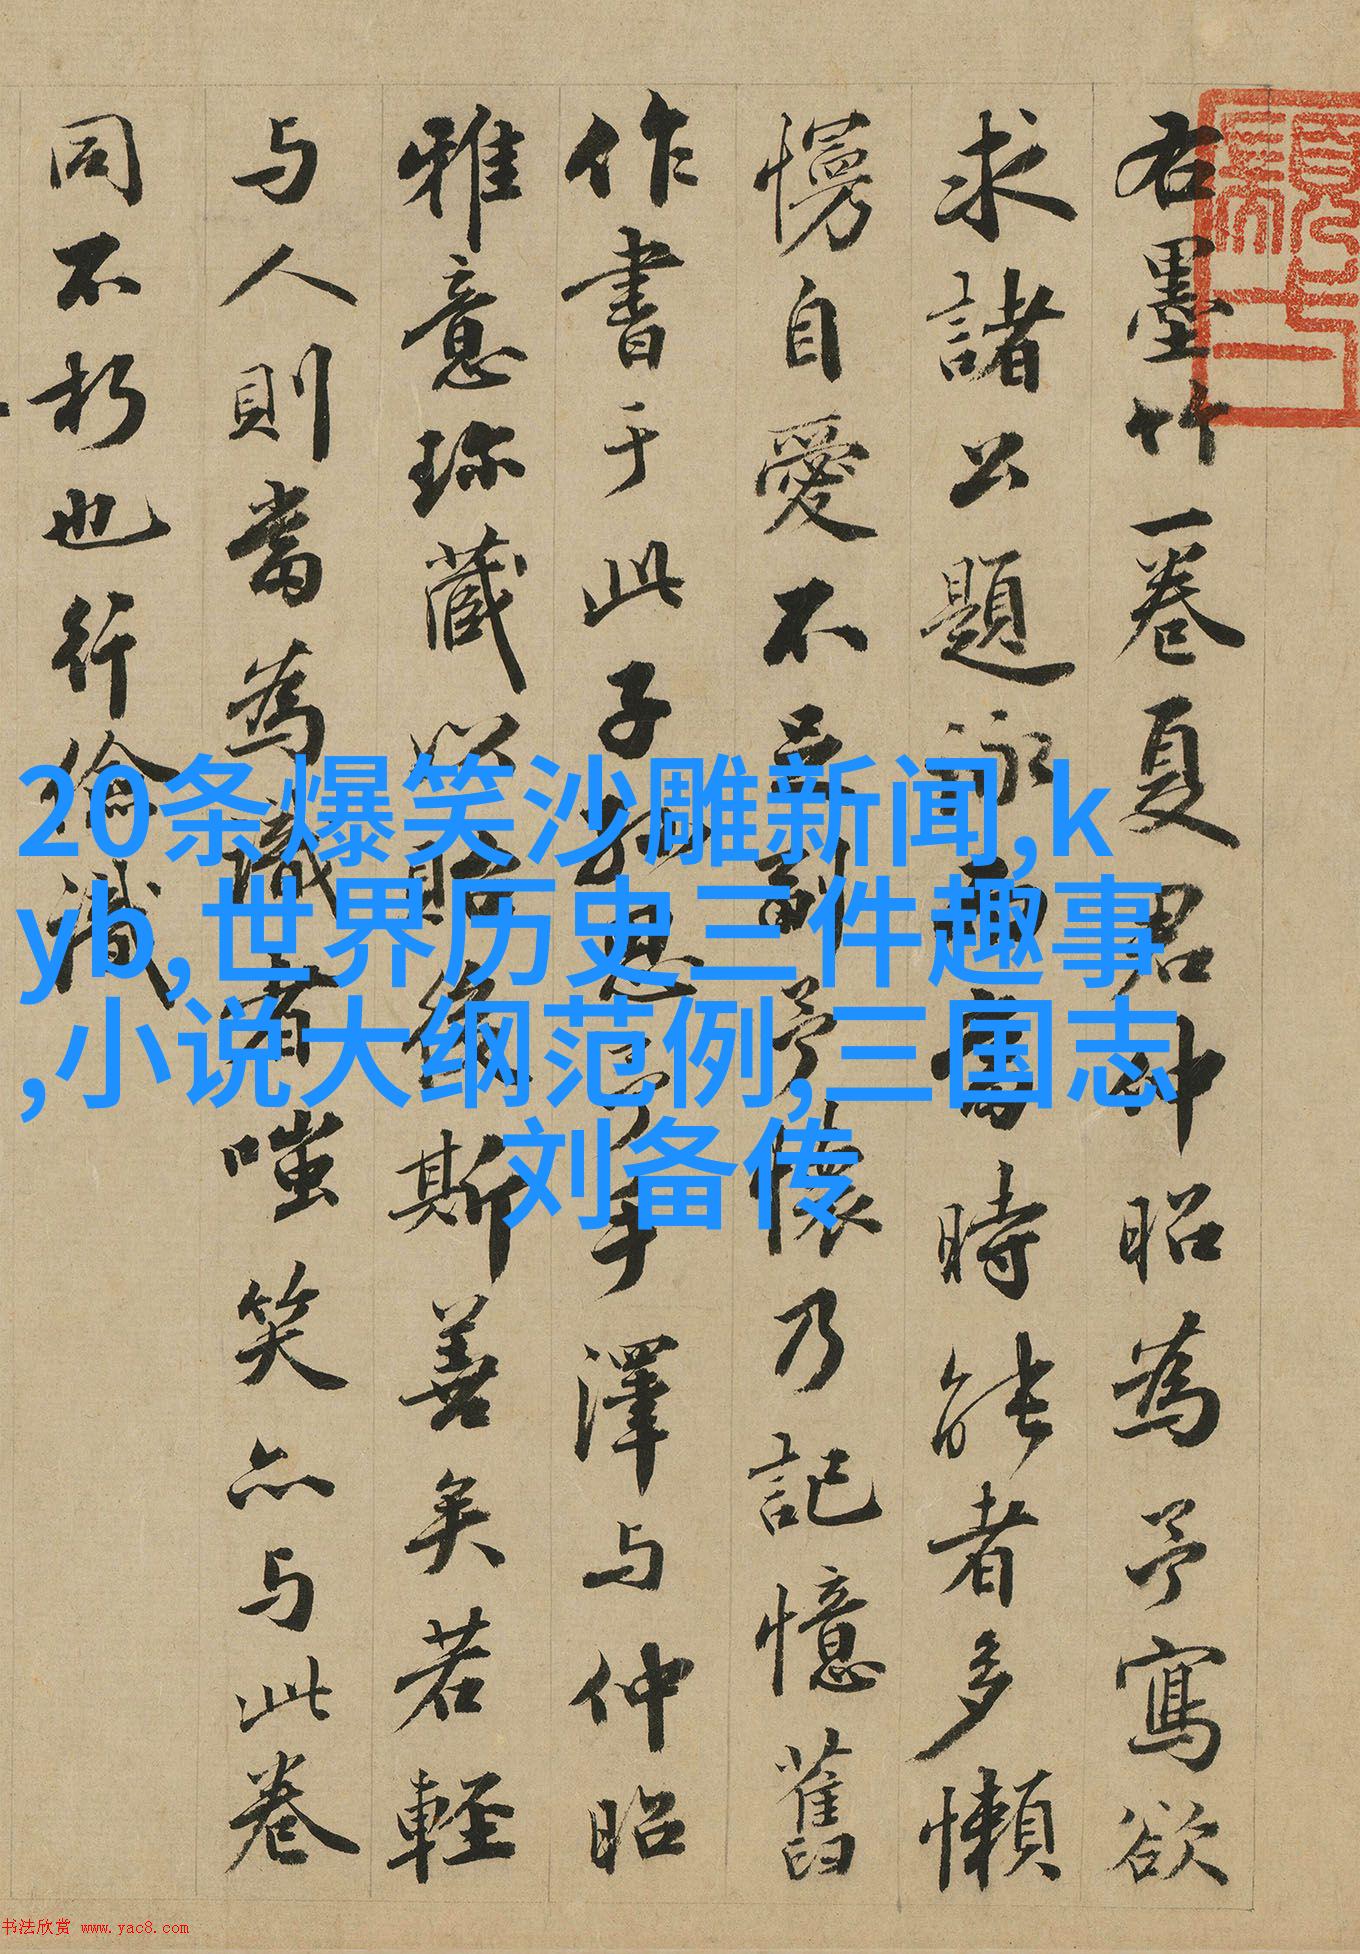 右墨竹一卷夏君仲昭為予寫欲
求諸公題詠時能者多懶
慢自愛不足副予懷乃記憶舊
作書于此子孫思予手澤与仲昭
雅意珎藏以貽後斯善矣若輕
与人則當為識者嗤笑亦与此卷
同不朽也行儉識
20条爆笑沙雕新闻,k
yb,世界历史三件趣事
,小说大纲范例,三国志
刘备传
书法欣赏 www.yac8.com